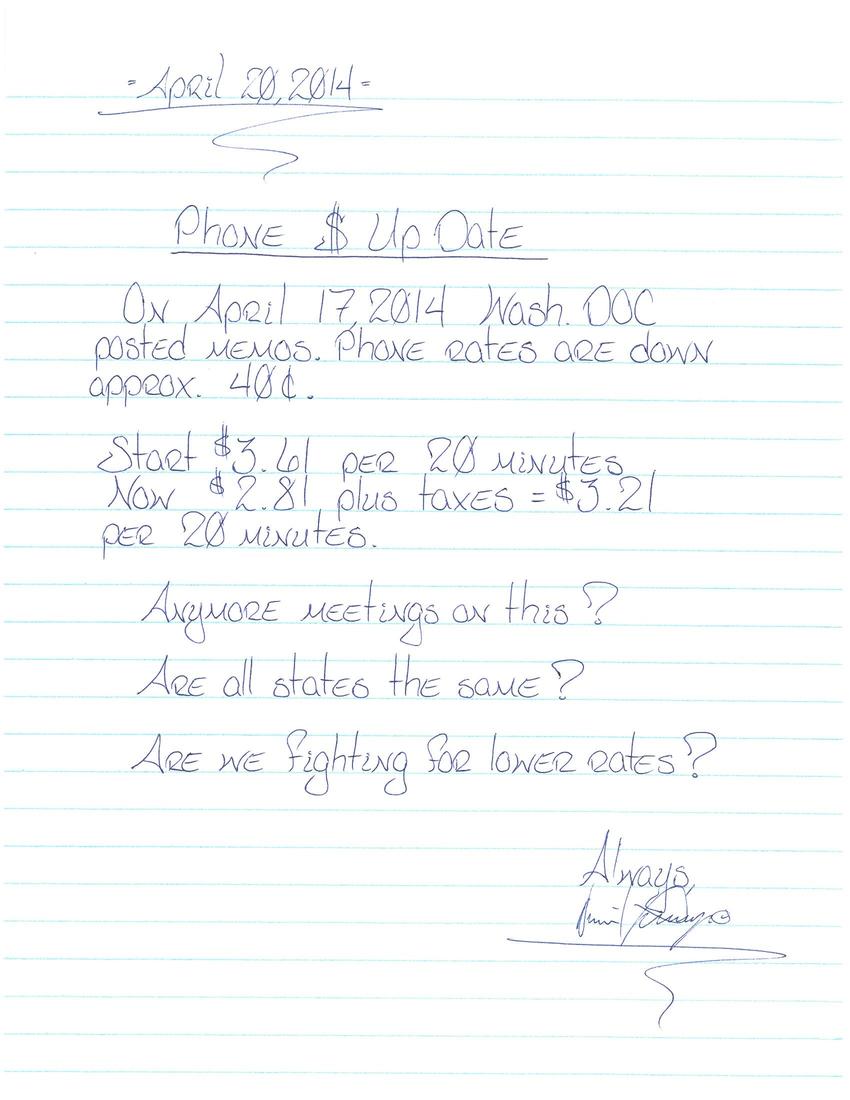 = April 20, 2014 =
Phone $ Up Date
On April 17, 2014 Wash. DOC
posted memos. Phone rates are down
approx. 40¢.
Start $3.61 per 20 minutes
Now $2.81 plus taxes = $3.21
per 20 minutes.
Anymore meetings on this?
Are all states the same?
Are we fighting for lower rates?
Always,